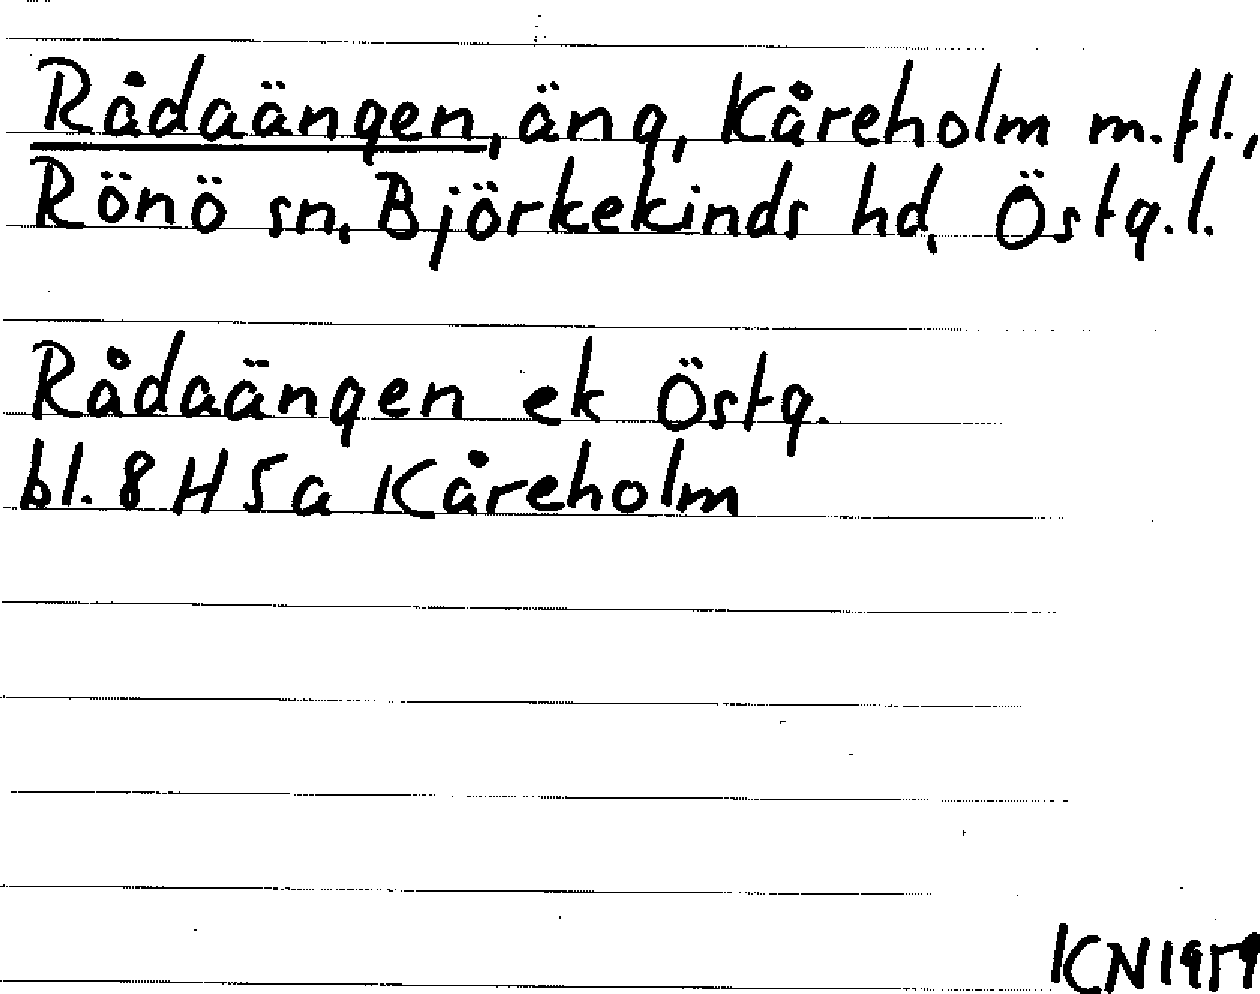 Rådaängen, äng, Kåreholm m.fl.,
Rönö sn, Björkekinds hd, Östg.l.
Rådaängen ek Östg.
bl. 8 H 5 a Kåreholm
KN 1959